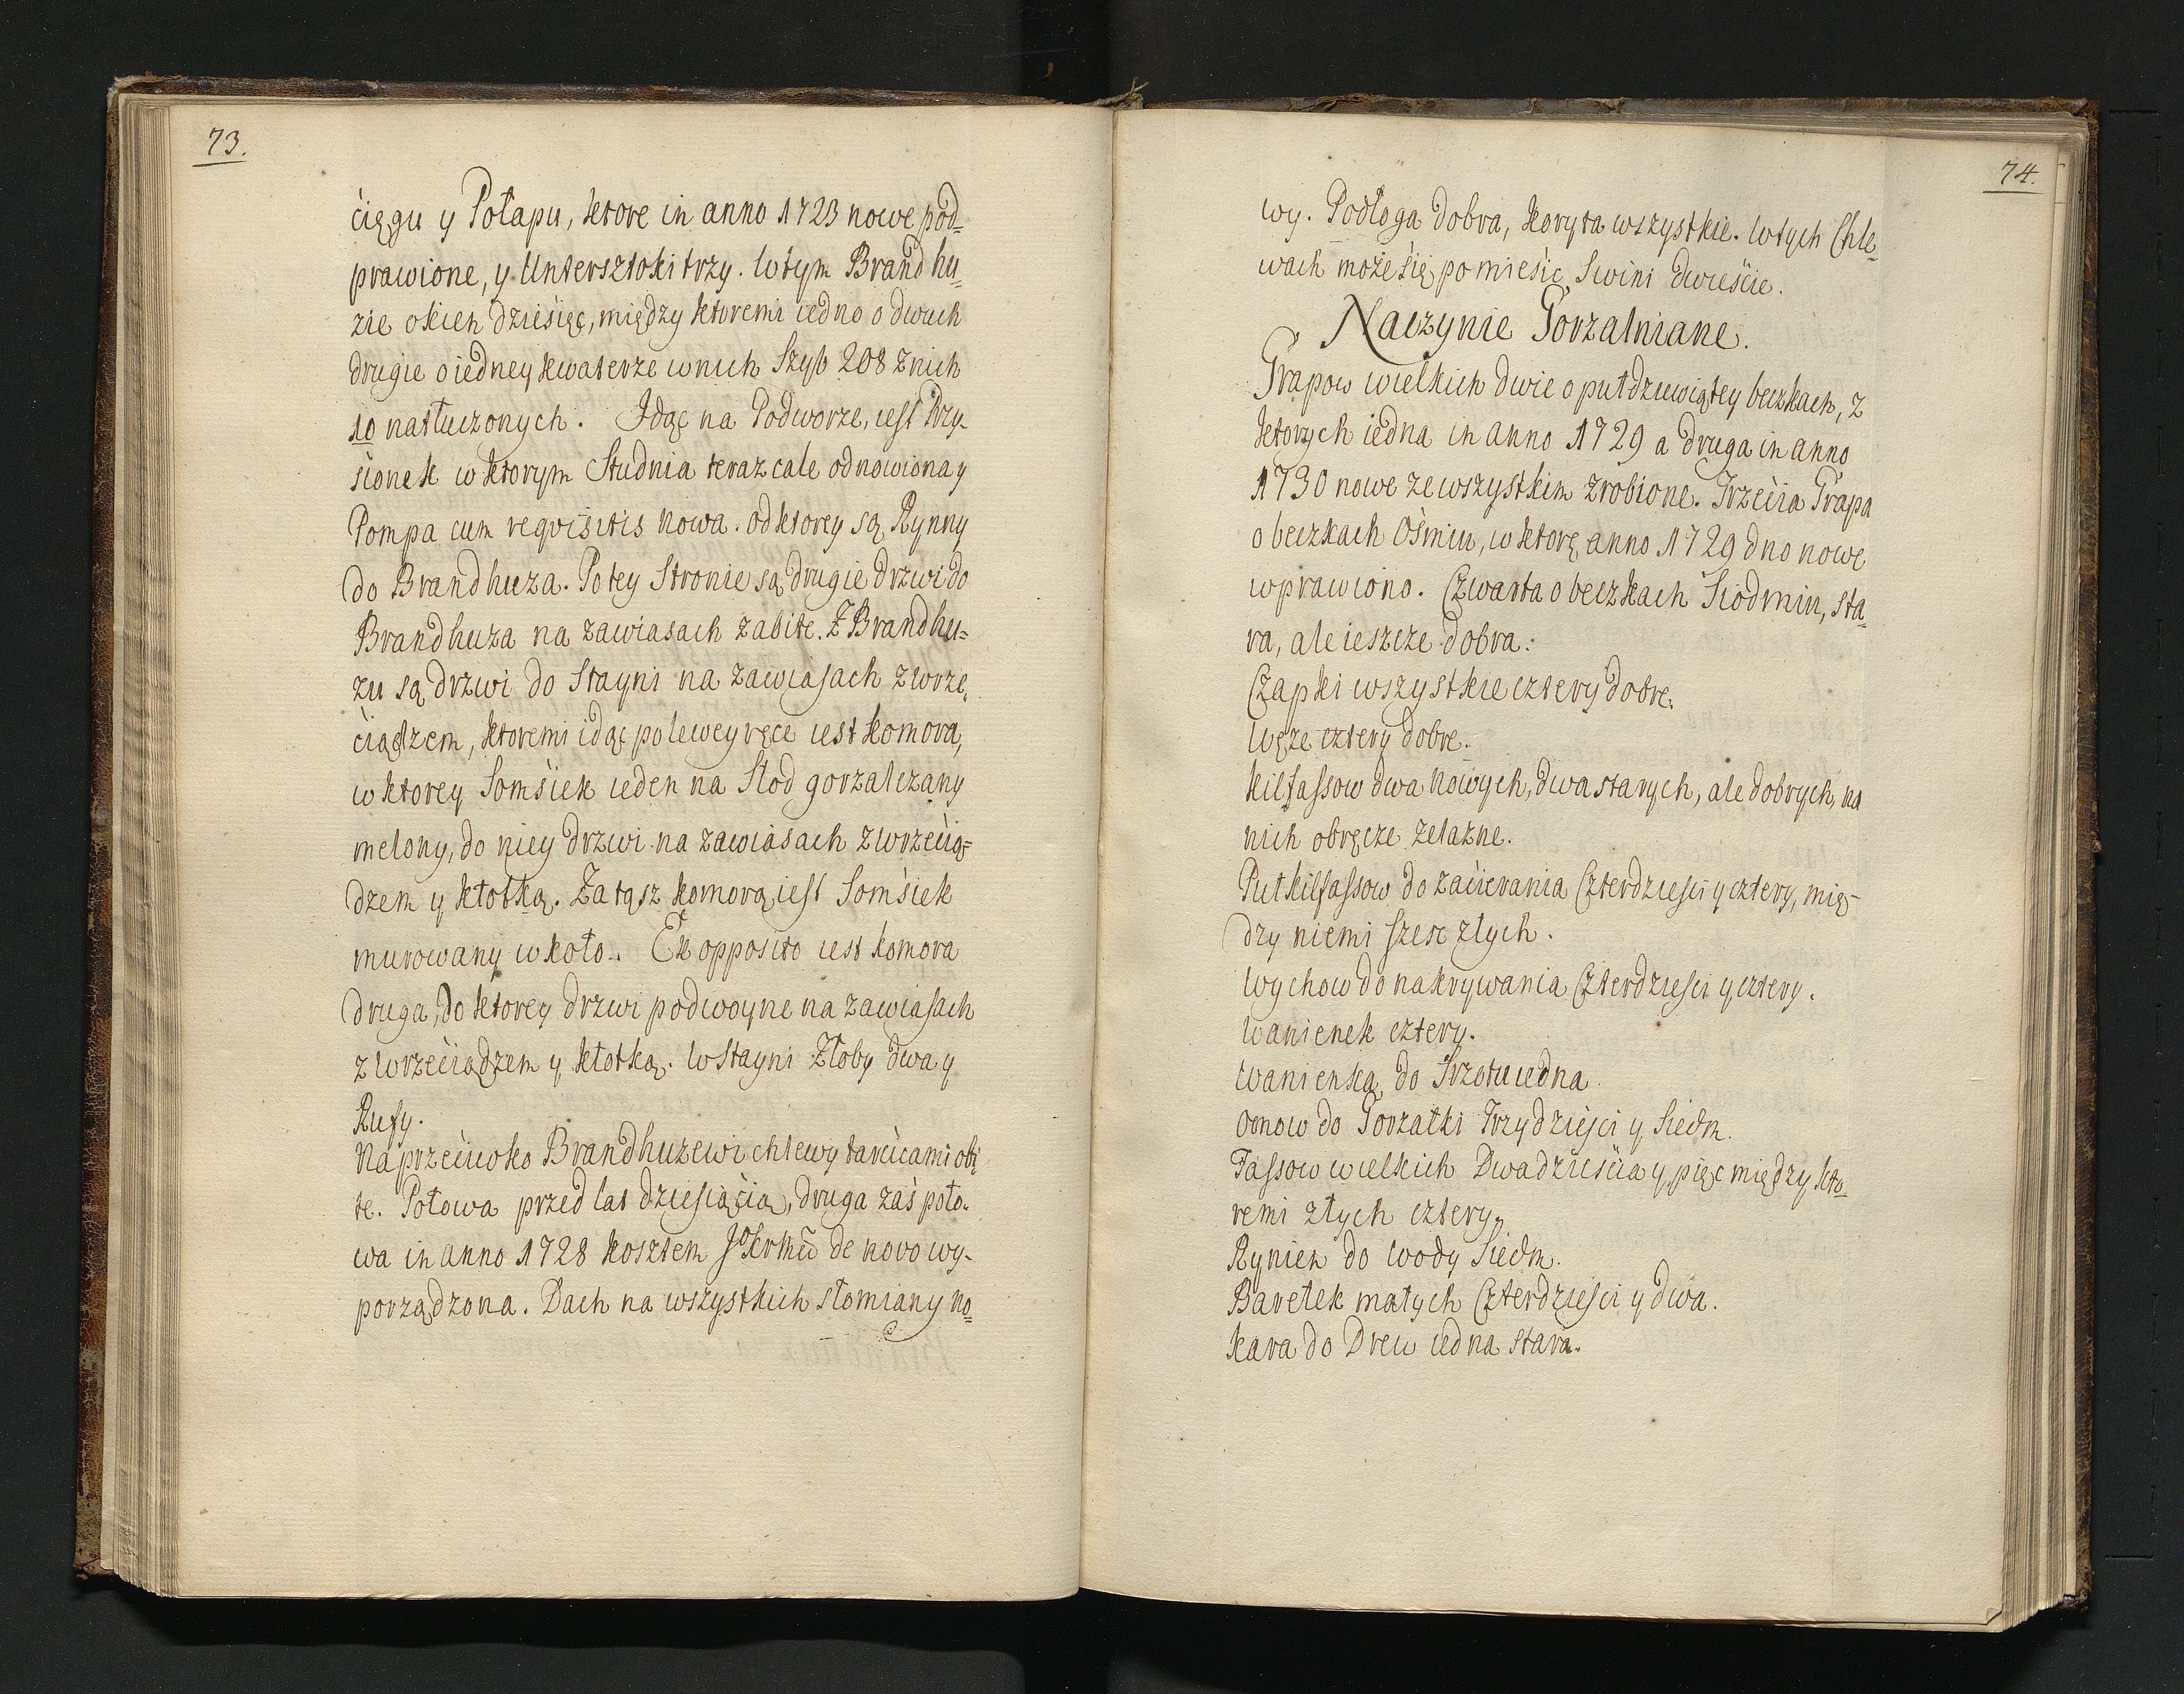 73.
ciągu y Połapu, ktore in anno 1723 nowe pod=
prawione, y Untersztoki trzy. W tym Brandhu=
zie okien dziesięc, między ktoremi iedno o dwuch
drugie o iedney kwaterze w nich Szyb 208 z nich
10 natłuczonych. Idąc na Podworze, iest Przy-
sionek w ktorym Studnia teraz cale odnowiona y
Pompa cum reqvisitis nowa. od ktorey są Rynny
do Brandhuza. Po tey Stronie są drugie drzwi do
Brandhuza na zawiasach zabite. Z Brandhu=
zu są drzwi do Stayni na zawiasach z wrze,
ciądzem, ktoremi idąc po lewey ręce iest komora,
w ktorey Somsiek ieden na Słod gorzalczany
mełony, do niey drzwi na zawiasach z wrzecią=
dzem y kłotką. Za tąsz komorą iest Somsiek
murowany w koło. Ex opposito iest komora
druga, do ktorey drzwi podwoyne na zawiasach
z wrzeciądzem y kłotką. W Stayni Złoby dwa y
Rufy.
Naprzeciwko Brandhuzewi chlewy tarcicami obi
te. Połowa przed lat dziesiącią, druga zaś poło-
wa in anno 1728 kosztem de novo wy-
porządzona. Dach na wszystkich słomiany no=
74.
wy. Podłoga dobra, koryta wszystkie. W tych Chle=
wach może się pomiesic Swini dwiescie.
Naczynie Gorzalniane.
Grapow wielkich dwie o puł dziewiątey beczkach, z
ktorych iedna in anno 1729 a druga in anno
1730 nowe ze wszystkim zrobione. Trzecia Grapa
o beczkach Ośmiu, w ktorę anno 1729 dno nowe
wprawiono. Czwarta o beczkach Siodmiu, sta=
ra, ale ieszcze dobra.
Czapki wszystkie cztery dobre.
Węze cztery dobre.
Kilfassow dwa nowych, dwa starych, ale dobrych, na
nich obręcze zelazne.
Puł kilfassow do zacierania Czterdziesci y cztery, mię-
dzy niemi szesc złych.
Wychow do nakrywania Czterdziesci y cztery.
Wanienek cztery.
Wanienka do Srzotu iedna.
Omow do Gorzałki Trzydziesci y Siedm.
Fassow wielkich Dwadziescia y pięc między kto=
remi złych cztery.
Rynien do Wody Siedm.
Barełek małych Czterdziesci y dwa.
Kara do Drew iedna stara.